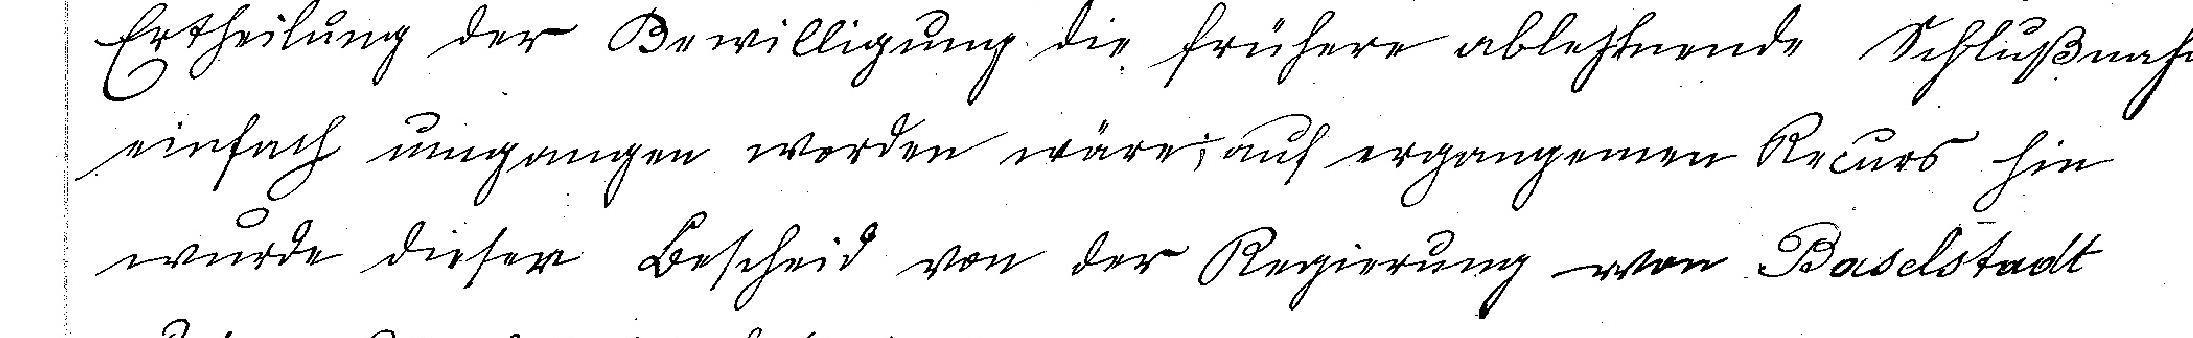 Ertheilung der Bewilligung die frühere ablehnende Schlußnah
einfach umgangen worden wäre; auf ergangenen Recurs hin
wurde dieser Bescheid von der Regierung von Baselstadt